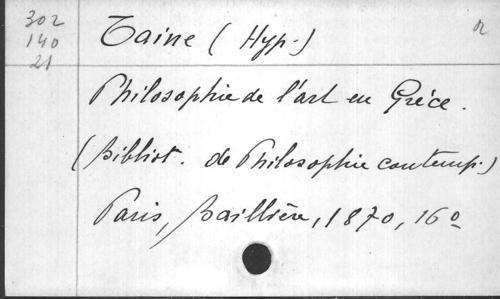 302
140
21
Taine (Hyp.)
R
Philosophie de l'art en Grèce.
(Bibliot. de Philosophie contemp.)
Paris, Baillière, 1870, 16º